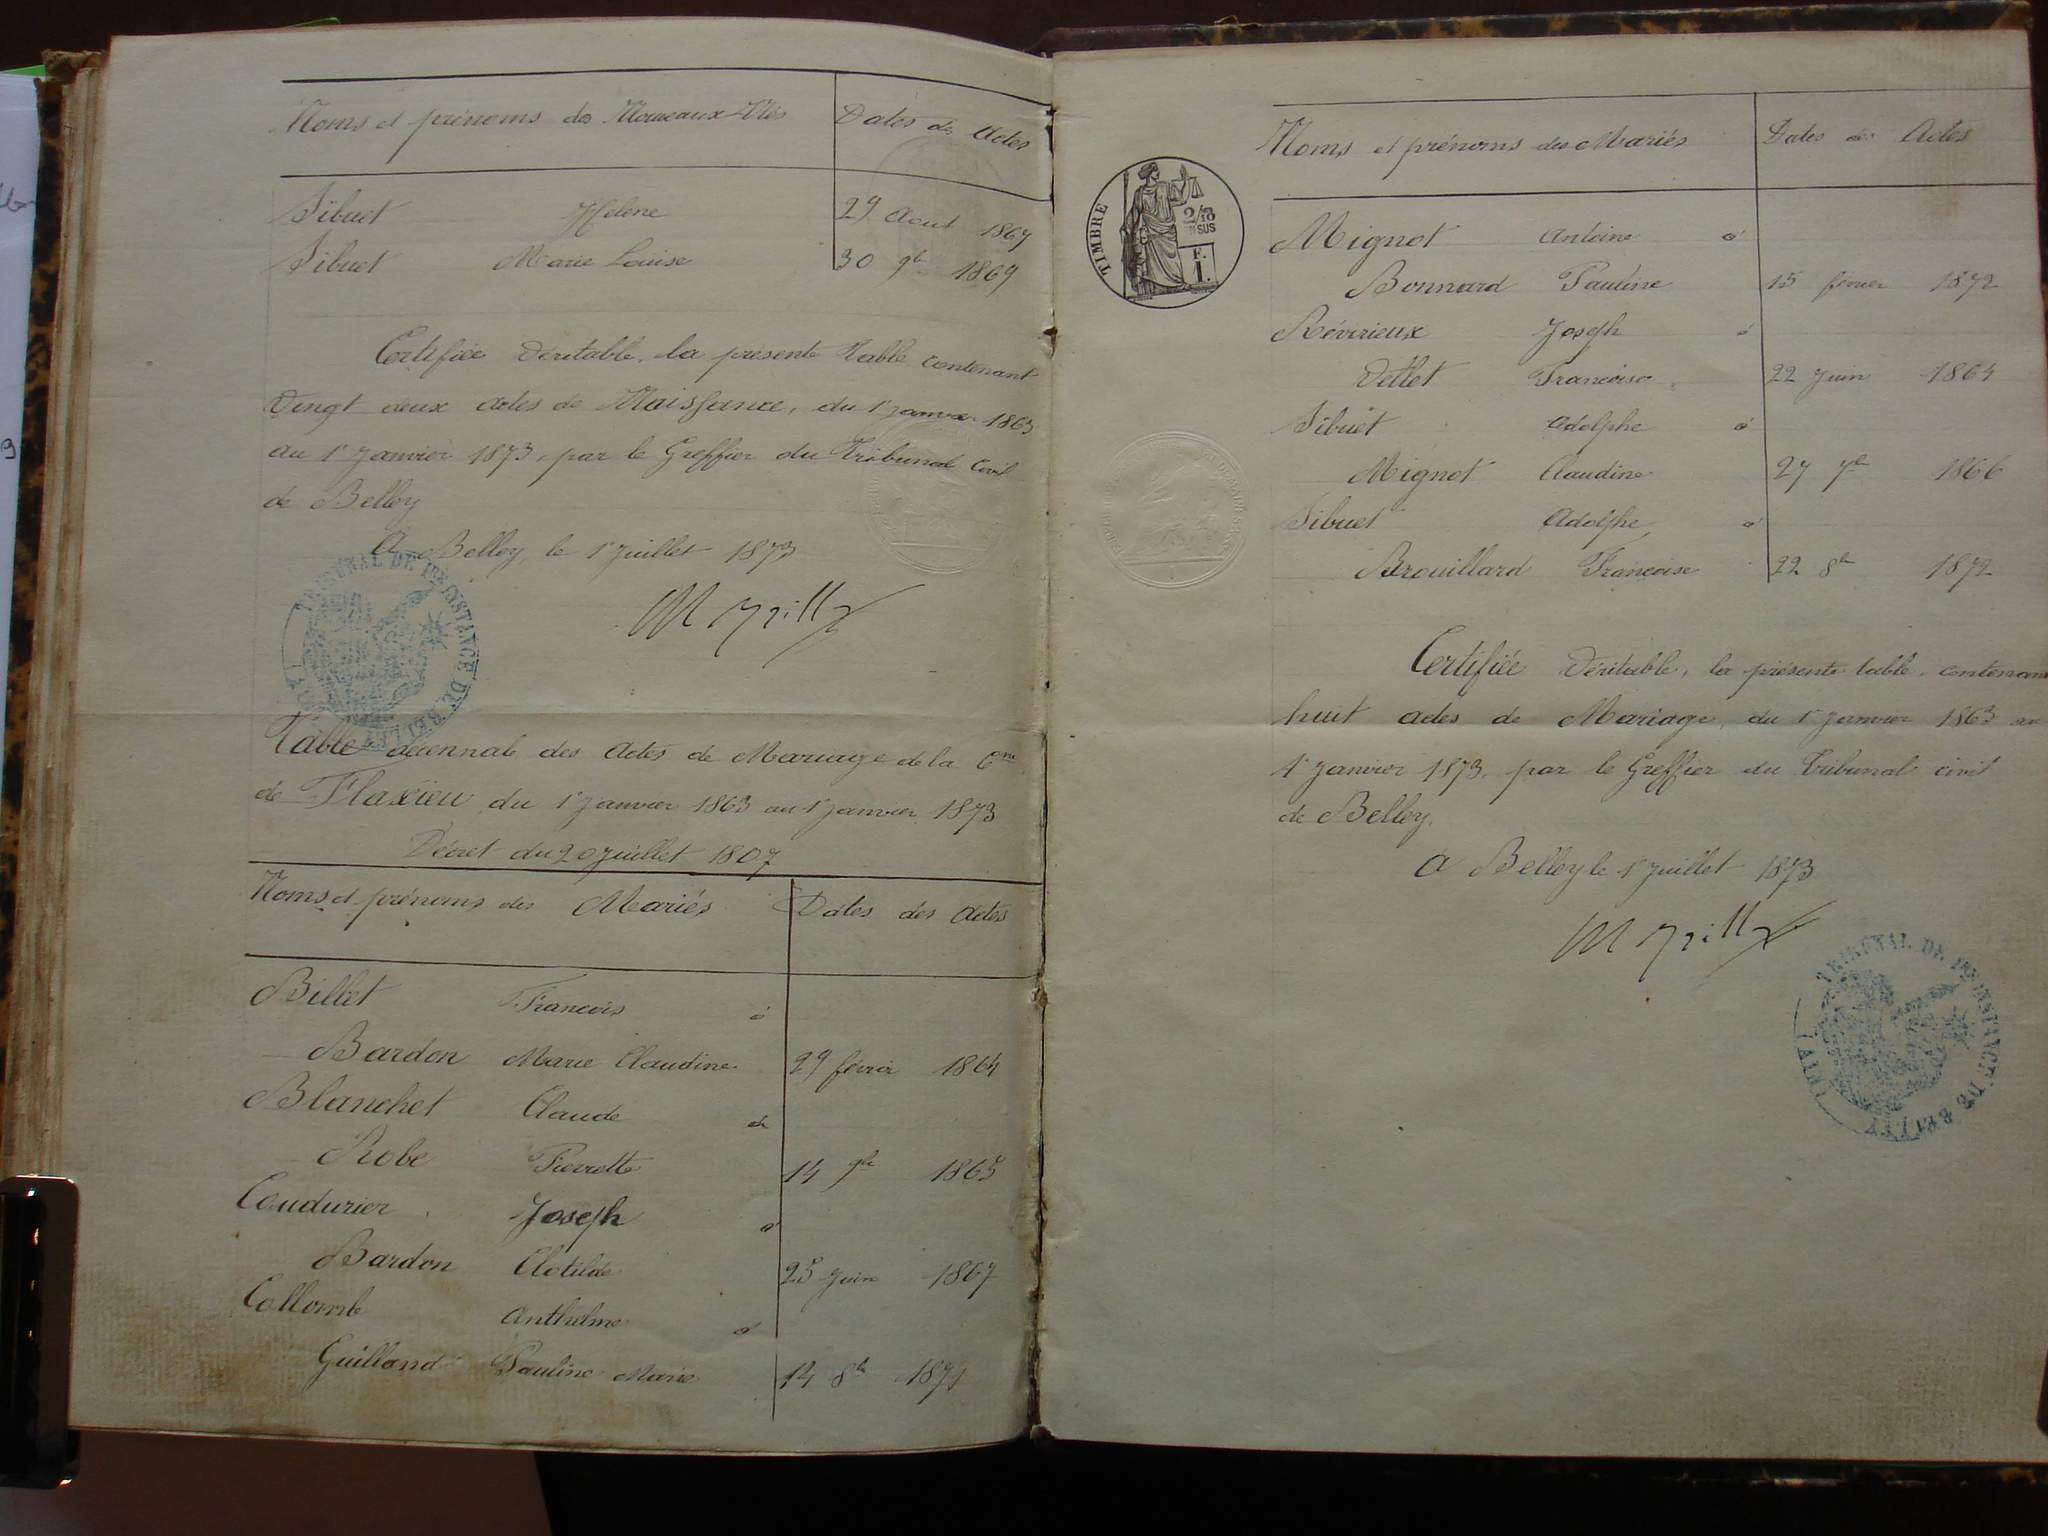 Noms et prénoms des Nouveaux Nés Dates des Actes
Sibuet Hélène 29 Aout 1867
Sibuet Marie Louise 30 9bre 1869
Certifiée Véritable, la présente Table contenant
Vingt deux actes de Naissance, du 1er janvier 1863
au 1er Janvier 1873, par le Greffier du Tribunal Civil
de Belley
A Belley, le 1er Juillet 1873
TRIBUNAL DE 1RE INSTANCE DE BELLEY (AIN)
Table décennale des Actes de Mariage de la Cne
de Flaxieu du 1er janvier 1863 au 1er janvier 1873
Décret du 20 juillet 1807
Noms et prénoms des Mariés Dates des Actes
Billet Francois à
Bardon Marie Claudine 29 février 1864
Blanchet Claude et
Robe Pierrette 14 9bre 1865
Coudurier Joseph à
Bardon Clotilde 25 Juin 1867
Collomb Anthelme à
Guilland Pauline Marie 14 8bre 1871
TIMBRE
2/10 EN SUS
F. 1.
Noms et prénoms des Mariés Dates des Actes
Mignot Antoine à
Bonnard Pauline 15 février 1872
Révérieux Joseph à
Vettet Francoise 22 Juin 1864
Sibuet Adolphe à
Mignot Claudine 27 7bre 1866
Sibuet Adolphe à
Brouillard Françoise 22 8bre 1872
Certifiée Véritable, la présente table, contenant
huit actes de Mariage, du 1er Janvier 1863 au
1er Janvier 1873, par le Greffier du Tribunal civil
de Belley.
A Belley le 1er Juillet 1873
TRIBUNAL DE 1RE INSTANCE DE BELLEY (AIN)